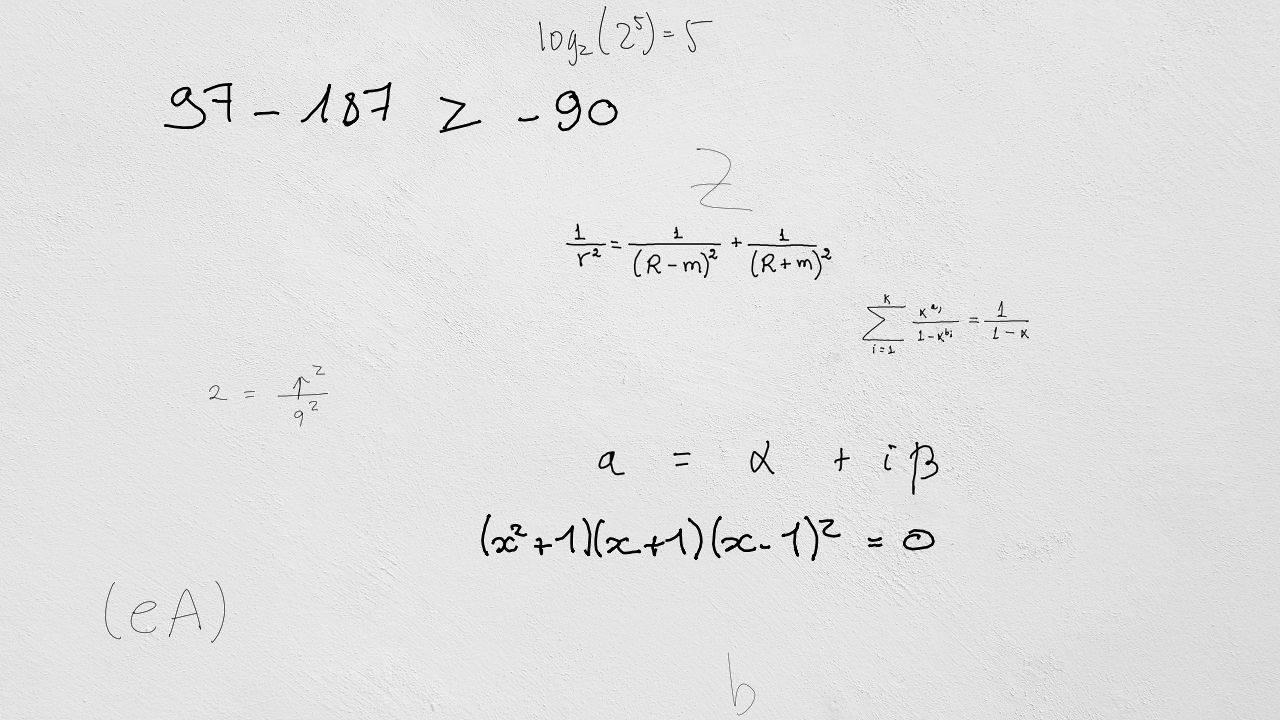 log₂(2⁵) = 5
97 - 187 ≥ -90
Z
1/r² = 1/(R-m)² + 1/(R+m)²
∑_{i=1}^{K} K^{a_i}/(1-K^{b_i}) = 1/(1-K)
2 = p²/q²
a = α + iβ
(x²+1)(x+1)(x-1)² = 0
(eA)
b